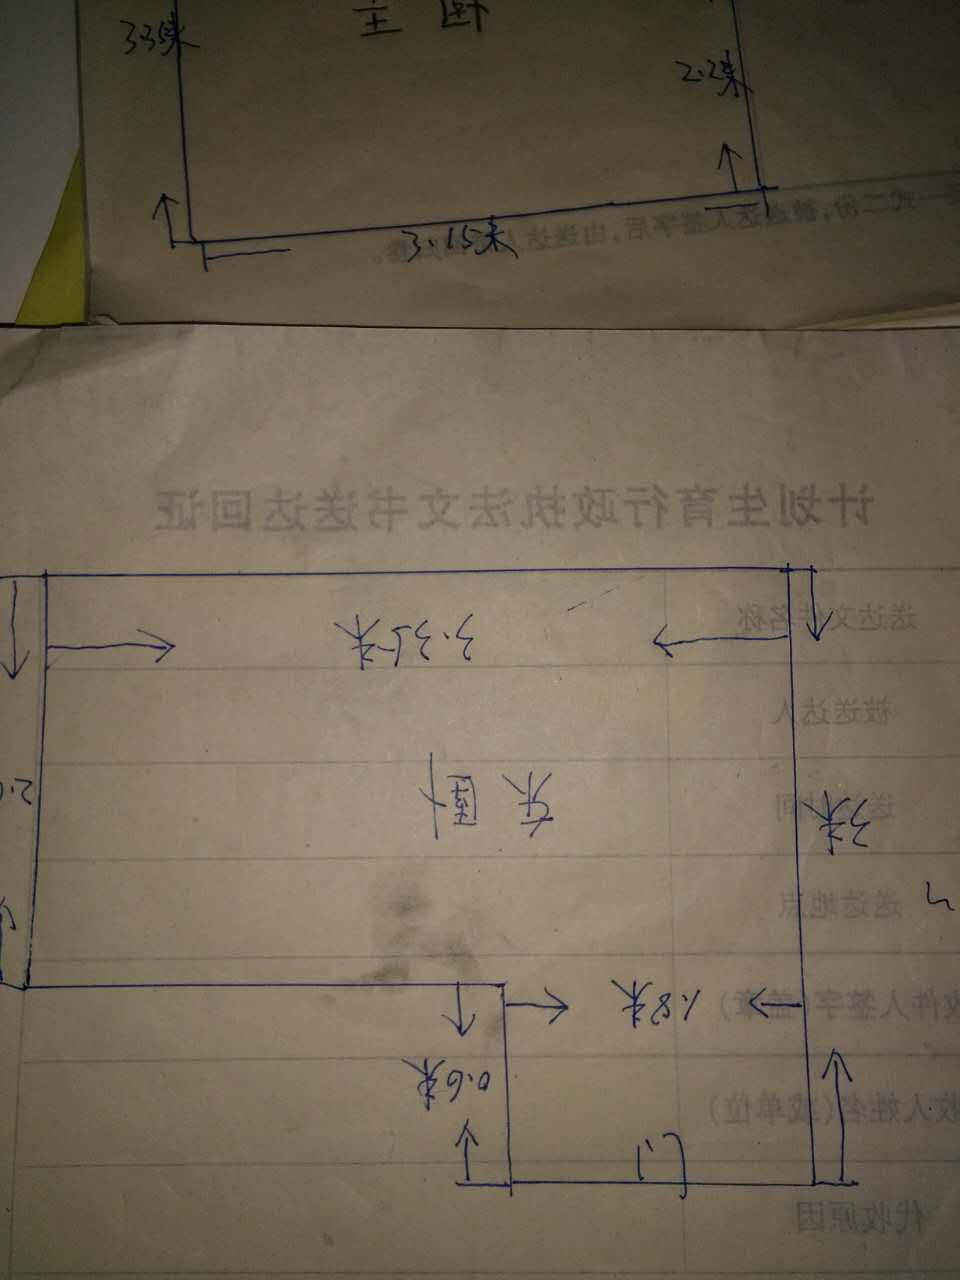 3.35米
主卧
2.2米
3.15米
一式二份,被送达人签字后,由送达人
计划生育行政执法文书送达回证
送达文件名称
3.35米
被送达人
东卧
送达时间
3米
送达地点
1.8米
收件人签字(盖章)
0.6米
收人姓名(或单位)
门
代收原因